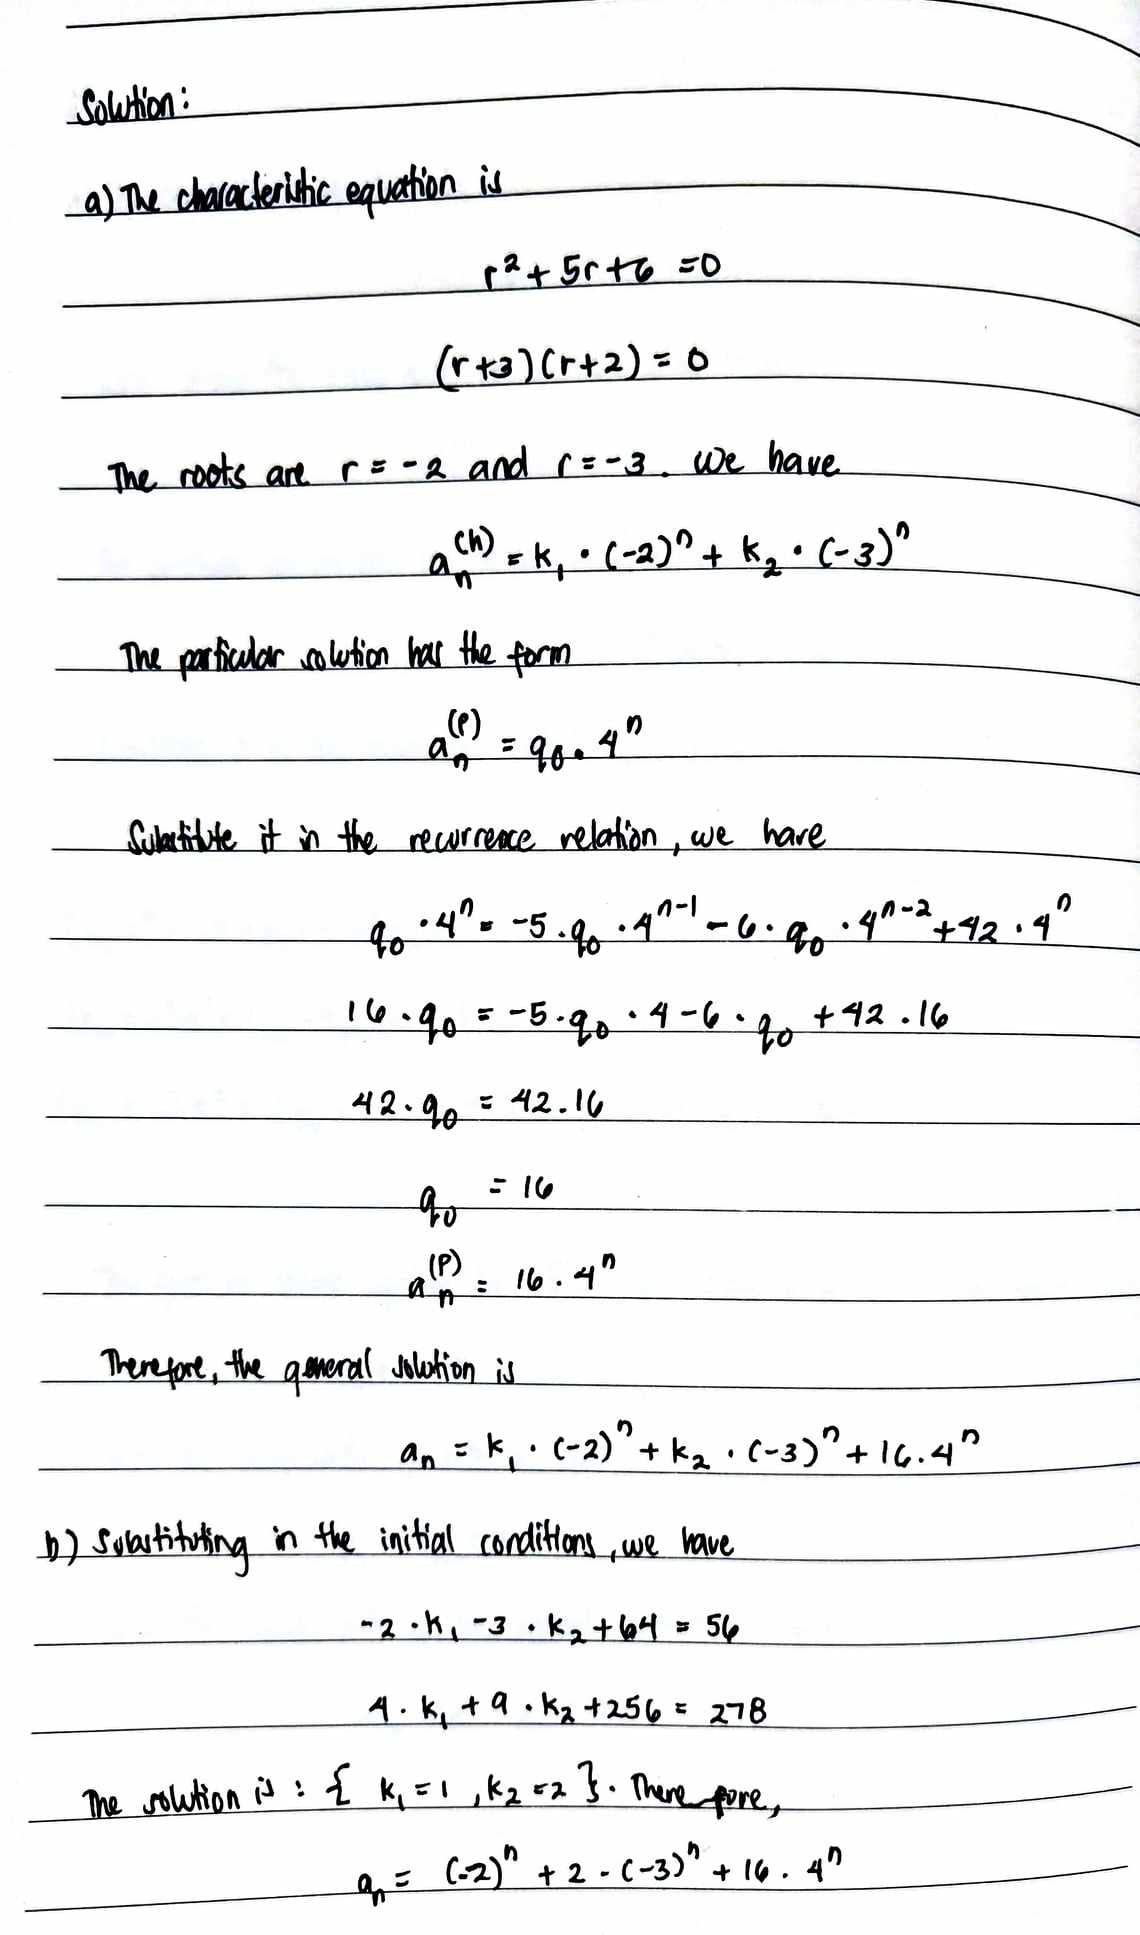 Solution:
a) The characteristic equation is
r² + 5r + 6 = 0
(r+3)(r+2) = 0
The roots are r = -2 and r = -3. We have
aₙ⁽ʰ⁾ = k₁ · (-2)ⁿ + k₂ · (-3)ⁿ
The particular solution has the form
aₙ⁽ᵖ⁾ = q₀ · 4ⁿ
Substitute it in the recurrence relation, we have
q₀ · 4ⁿ = -5 · q₀ · 4ⁿ⁻¹ - 6 · q₀ · 4ⁿ⁻² + 42 · 4ⁿ
16 · q₀ = -5 · q₀ · 4 - 6 · q₀ + 42 . 16
42 · q₀ = 42 . 16
q₀ = 16
aₙ⁽ᵖ⁾ = 16 · 4ⁿ
Therefore, the general solution is
aₙ = k₁ · (-2)ⁿ + k₂ · (-3)ⁿ + 16 . 4ⁿ
b) Substituting in the initial conditions, we have
-2 · k₁ - 3 · k₂ + 64 = 56
4 · k₁ + 9 · k₂ + 256 = 278
The solution is : { k₁ = 1 , k₂ = 2 }. Therefore,
aₙ = (-2)ⁿ + 2 · (-3)ⁿ + 16 . 4ⁿ